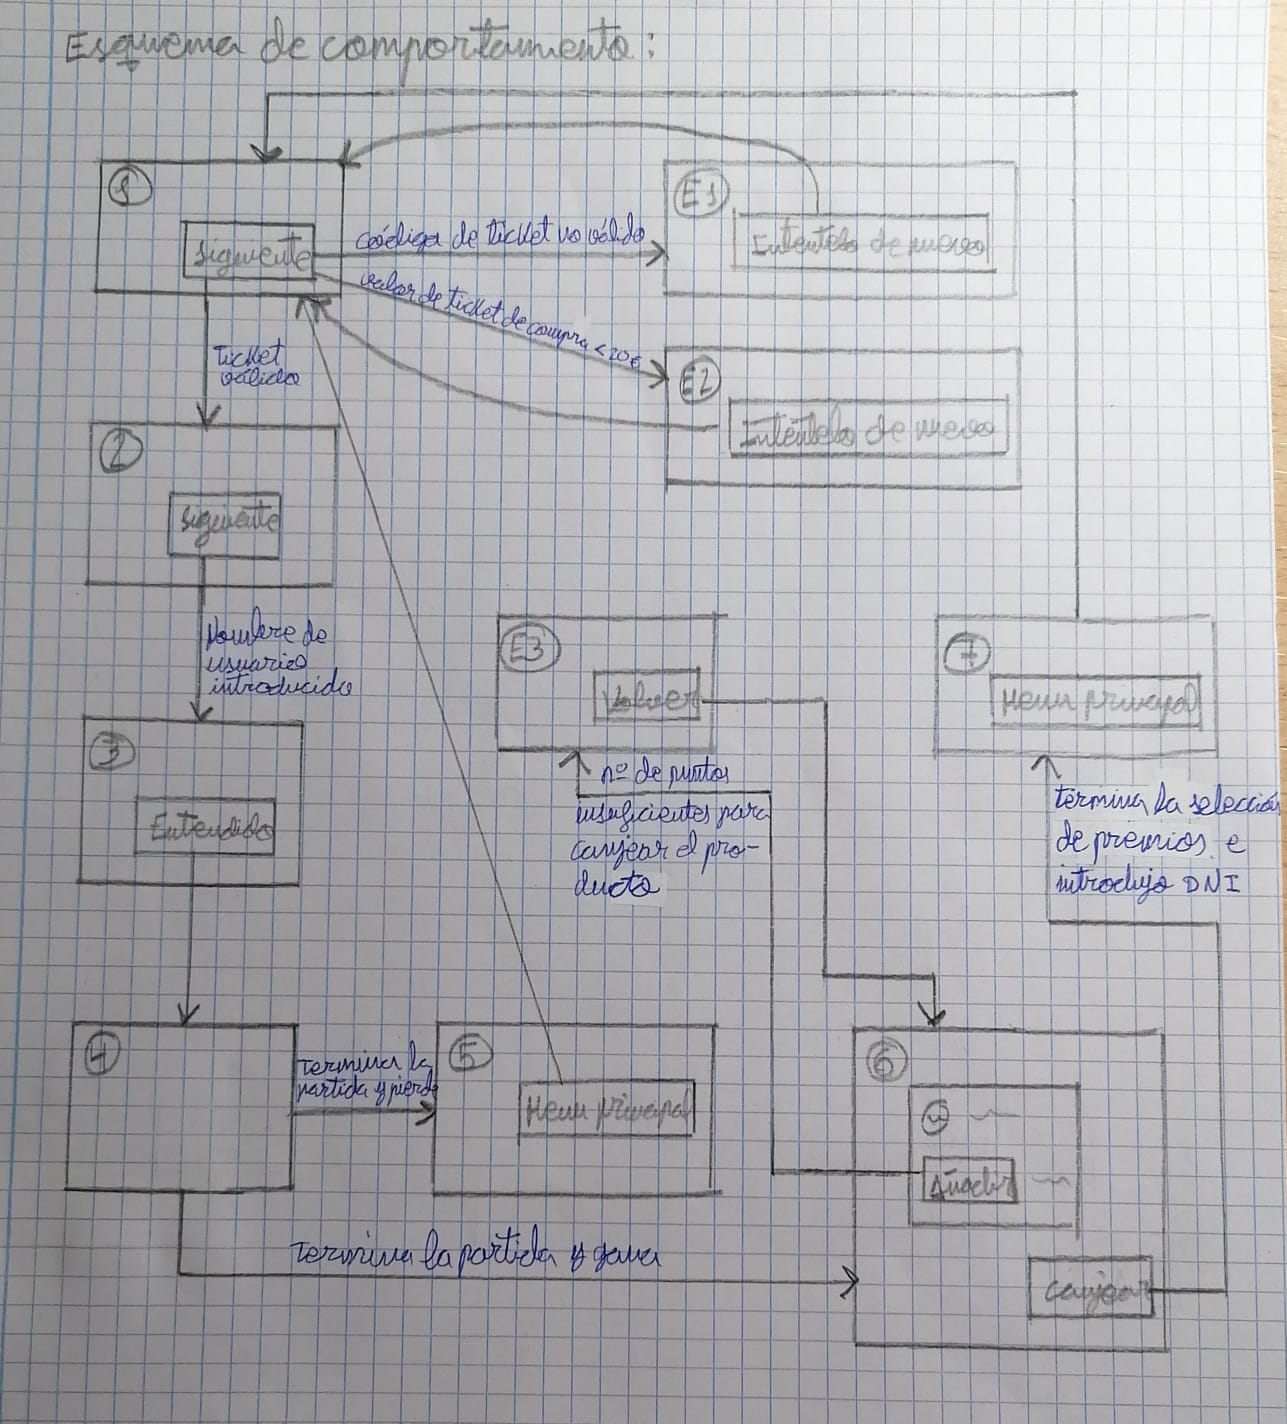 Esquema de comportamento:
1
Siguiente
código de ticket no válido
E1
Inténtelo de nuevo
valor de ticket de compra <20€
E2
Inténtelo de nuevo
ticket
válido
2
Siguiente
Nombre de
usuario
introducido
E3
Volver
7
Menu principal
3
Entendido
nº de puntos
insuficientes para
canjear el pro-
ducto
termina la selección
de premios e
introdujo DNI
4
termina la
partida y pierde
5
Menu principal
6
Añadir
termina la partida y gana
Canjear